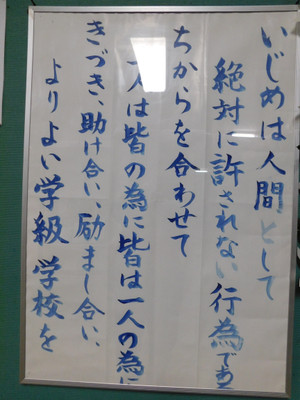 いじめは人間として
絶対に許されない行為であ
ちからを合わせて
一人は皆の為に皆は一人の為に
きづき、助け合い、励まし合い、
よりよい学級学校を